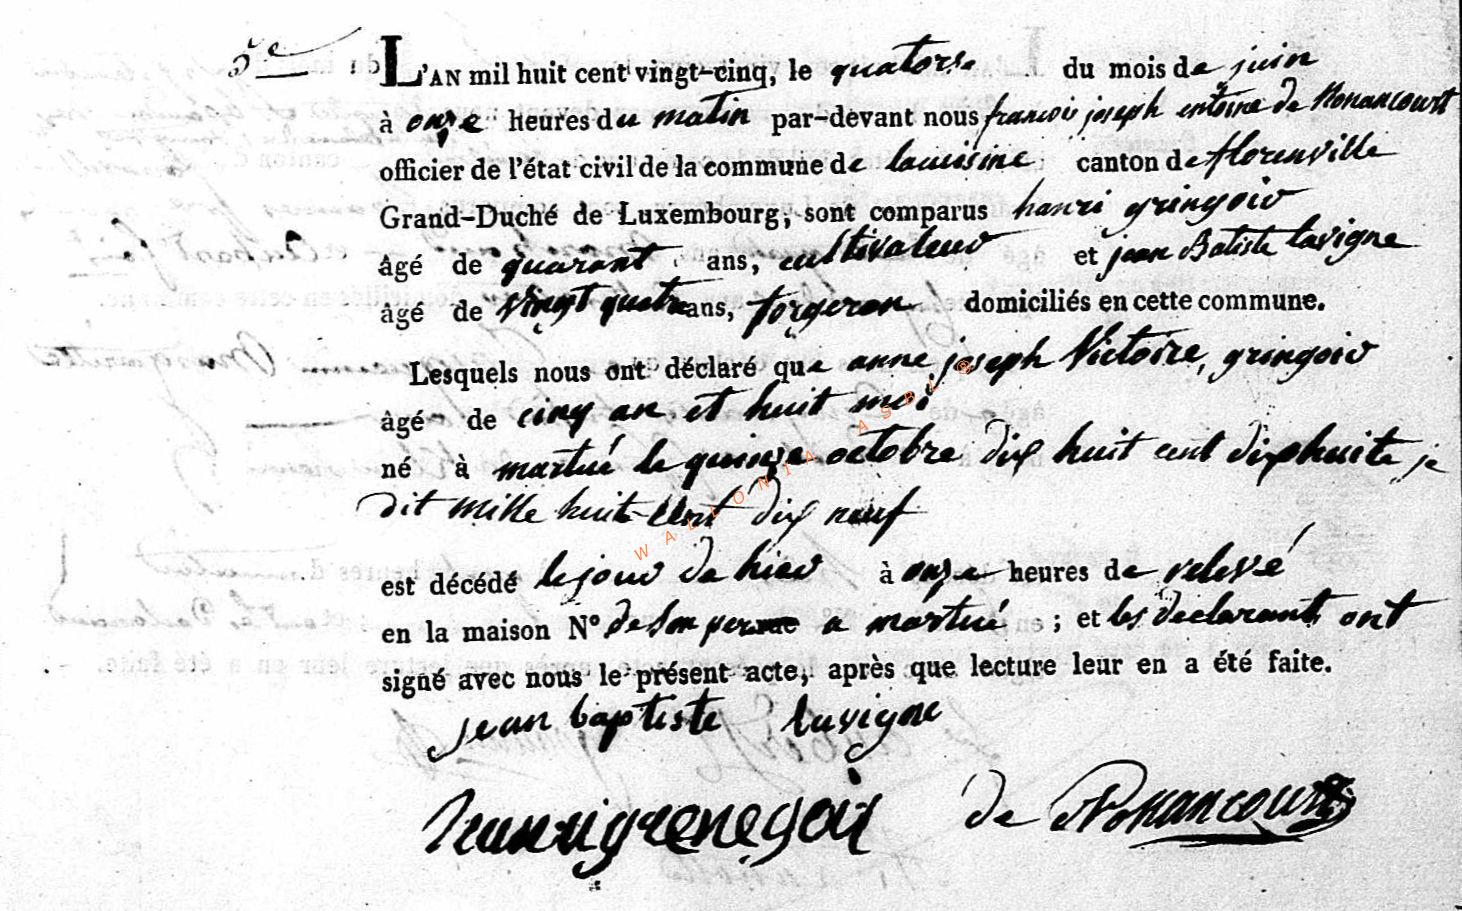 5e L'AN mil huit cent vingt-cinq, le quatorse du mois de juin
à onze heures du matin par-devant nous francois joseph entoine de Nonancourt
officier de l'état civil de la commune de lacuisine canton de florenville
Grand-Duché de Luxembourg, sont comparus hanri gringoir
âgé de quarant ans, cultivateur et jean Batiste lavigne
âgé de vingt quatre ans, forgeron domiciliés en cette commune.
Lesquels nous ont déclaré que anne joseph Victoire gringoir
âgé de cinq an et huit moi
né à martué le quinze octobre dix huit cent dixhuite je
dit mille huit cent dix neuf
est décédé le jour de hier à onze heures de relevé
en la maison N° de son per a martué ; et les declarants ont
signé avec nous le présent acte, après que lecture leur en a été faite.
jean baptiste lavigne
de Nonancourt
WALLONIA ASBL ©